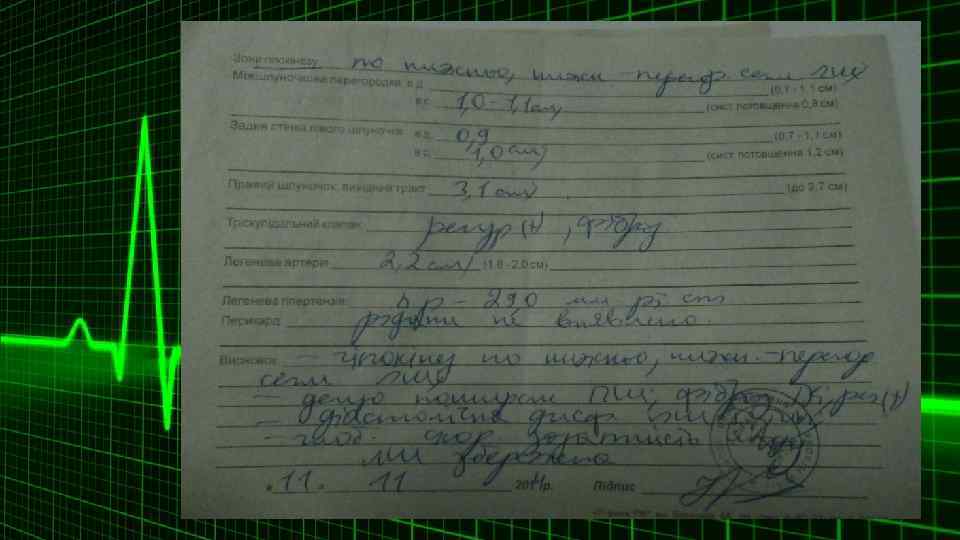 Зони гіпокінезу по нижньо, нижн - перегор. сегм ЛШ
Міжшлуночкова перегородка в д (0,7 - 1,1 см)
в с 1,0 - 1,1 см (сист. потовщення 0,8 см)
Задня стінка лівого шлуночка в д. 0,9 (0,7 - 1,1 см)
в с 1,0 см (сист. потовщення 1,2 см)
Правий шлуночок, вихідний тракт 3,1 см (до 2,7 см)
Трікуспідальний клапан регур (+)
Легенева артерія 2,2 см (1,8 - 2,0 см)
Легенева гіпертензія: р - 29,0 мм рт ст
Перикард рідини не виявлено.
Висновок: - гіпокінез по нижньо, нижн. - перегор
сегм ЛШ
- дещо поширен ПШ
- діастолічна дисф
- глоб. скор здатність
ЛШ збережена
" 11 " 11 201 р. Підпис